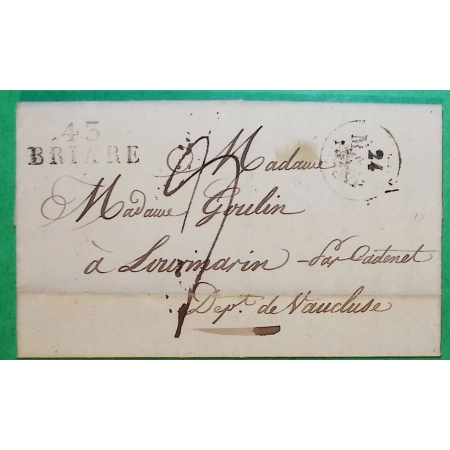 45
BRIARE
24
Madame
Madame Goulin
à Lourmarin par Cadenet
Dept. de Vaucluse